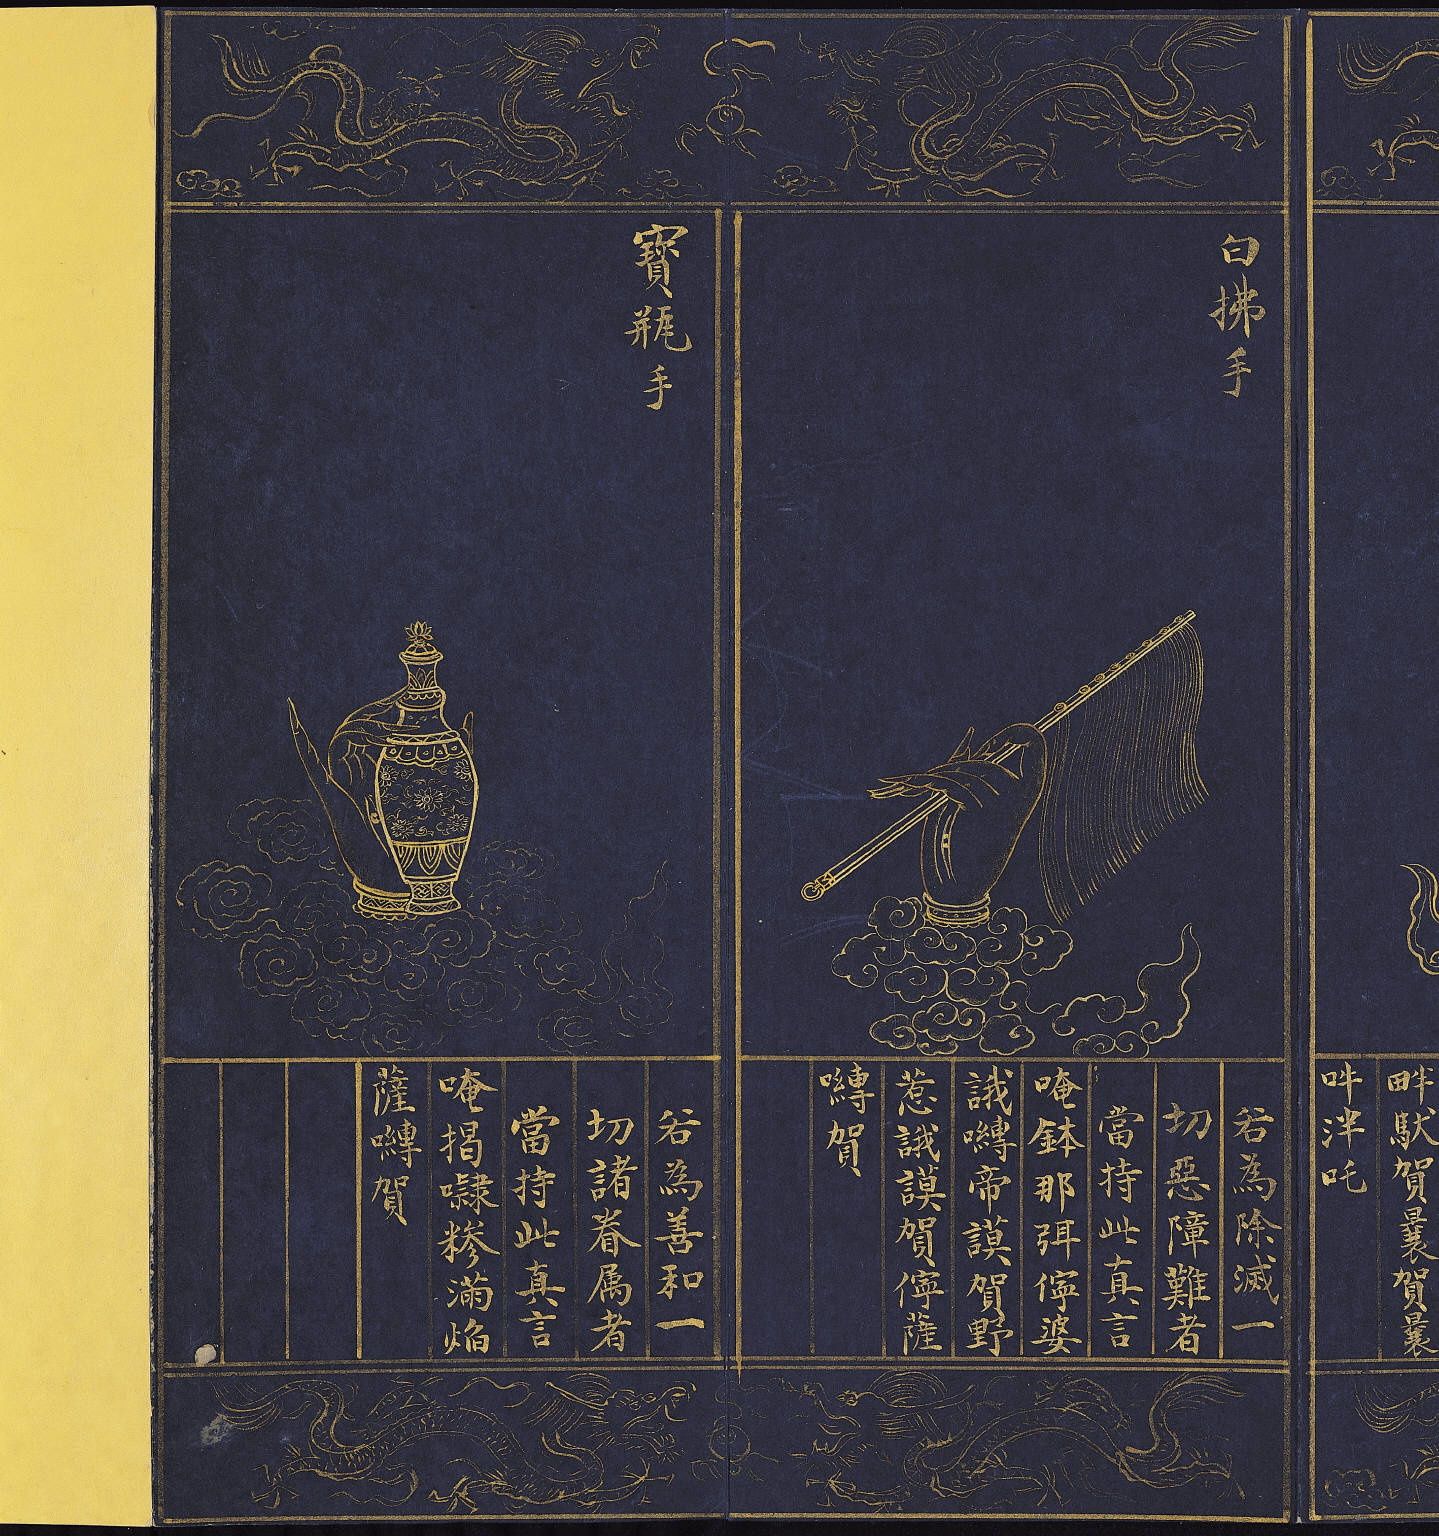 畔馱賀曩賀曩
吽泮吒
白拂手
若為除滅一
切惡障難者
當持此真言
唵鉢那弭儜婆
誐嚩帝謨賀野
惹誐謨賀儜薩
嚩賀
寶瓶手
若為善和一
切諸眷属者
當持此真言
唵揭㘑糝滿焰
薩嚩賀